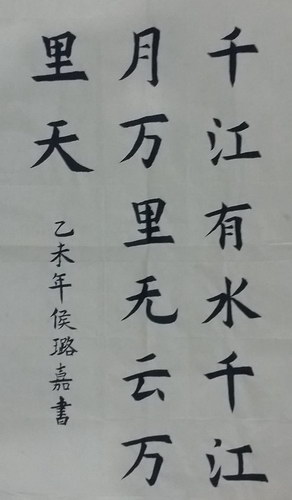 千江有水千江
月万里无云万
里天
乙未年侯璐嘉书